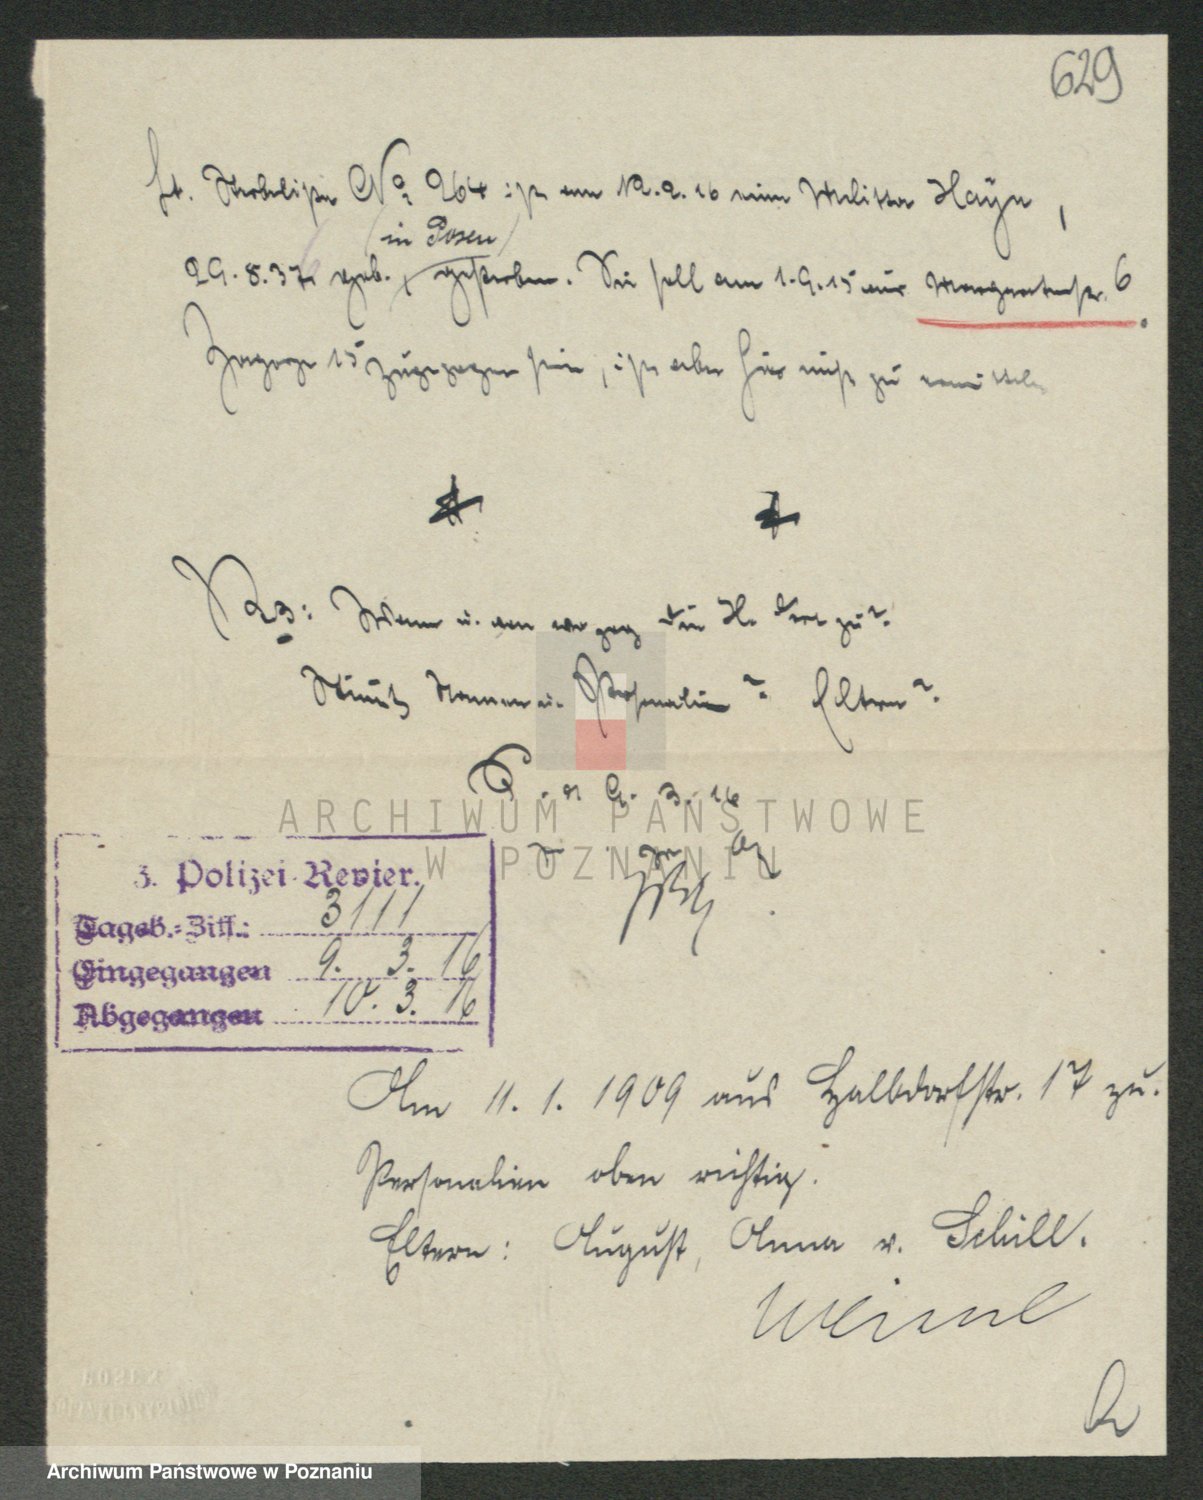 629
lt. Sterbeliste No 264 ist am 12.2.16 eine Melitta Hayn,
(in Posen)
29.8.37 geb., gestorben. Sie soll am 1.9.15 aus Margaretenstr. 6
Zugang 15 zugezogen sein, ist aber hier nicht zu ermitteln
R 3: Wann u. von wo zog die H. dort zu?
Stimmt Namen u. Personalien? Eltern?
P. d. 9.3.16
ARCHIWUM PAŃSTWOWE
W POZNANIU
3. Polizei-Revier.
Tageb.-Ziff.: 3111
Eingegangen 9. 3. 16
Abgegangen 10. 3. 16
Am 11. 1. 1909 aus Halbdorfstr. 17 zu.
Personalien oben richtig.
Eltern: August, Anna v. Schill.
POSEN
Archiwum Państwowe w Poznaniu